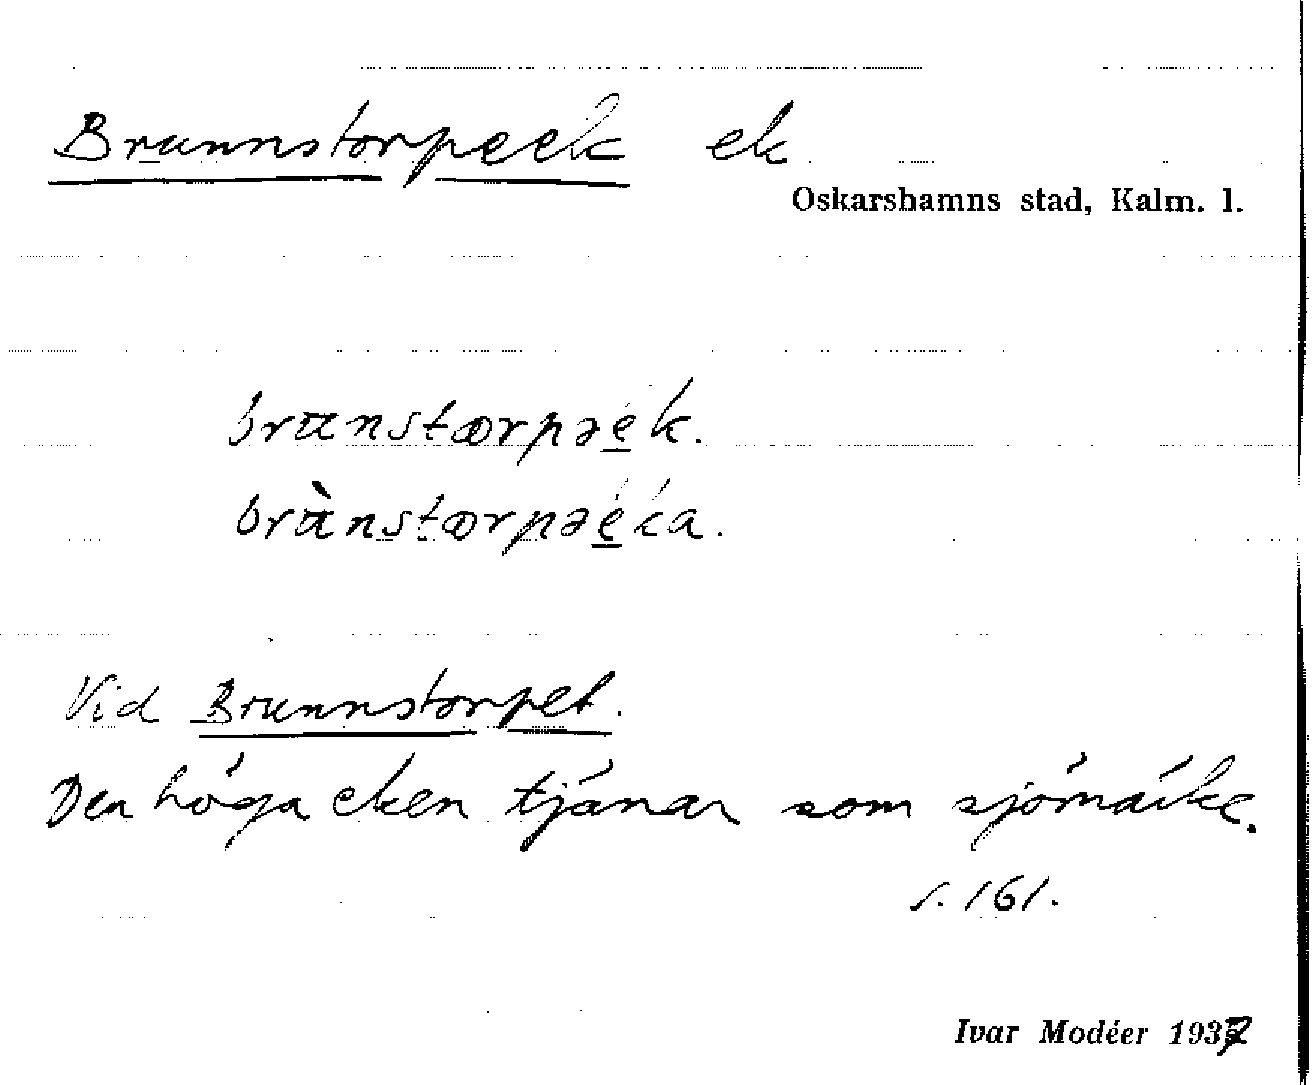 Brunnstorpeek ek
Oskarshamns stad, Kalm. l.
brunstørpəe̲k.
brùnstørpəe̲ka.
Vid Brunnstorpet.
Den höga eken tjänar som sjömärke.
s. 161.
Ivar Modéer 1937